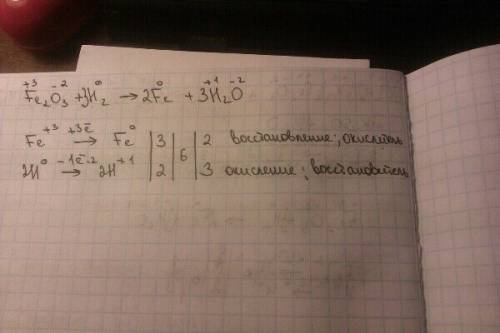 +3 -2 0 0 +1 -2
Fe₂O₃ + 3H₂ → 2Fe + 3H₂O
Fe⁺³ +3ē → Fe⁰ | 3 | 6 | 2 восстановление; окислитель
2H⁰ -1ē·2 → 2H⁺¹ | 2 | 3 окисление; восстановитель